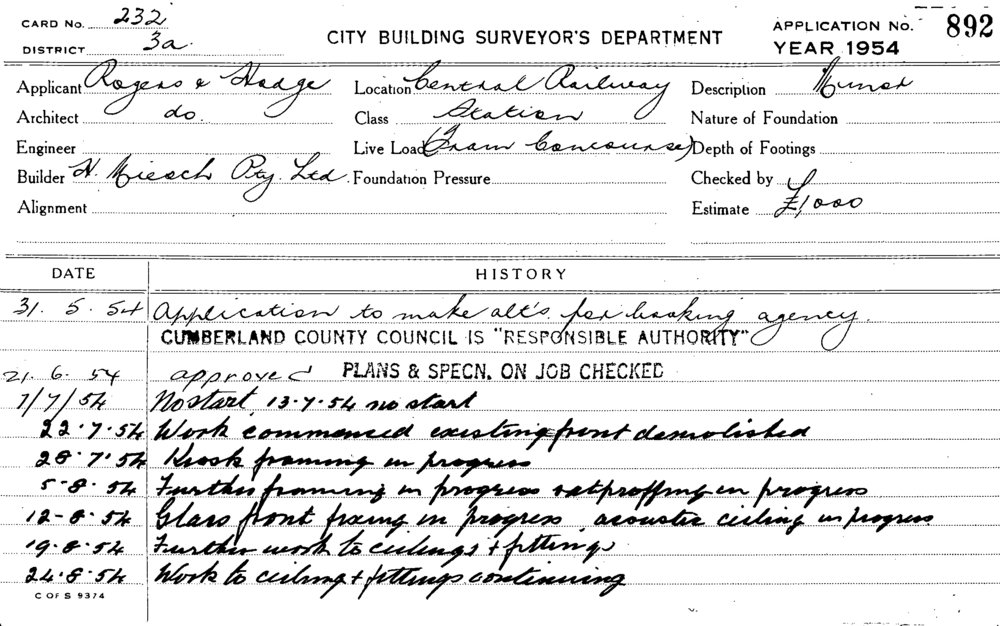 CARD No. 232
DISTRICT 3a.
CITY BUILDING SURVEYOR'S DEPARTMENT
APPLICATION No. 892
YEAR 1954
Applicant Rogers & Hodge Location Central Railway Description
Architect do. Class Station Nature of Foundation
Engineer Live Load (Tram Concourse) Depth of Footings
Builder H. Miesch Pty. Ltd. Foundation Pressure Checked by
Alignment Estimate £1,000
DATE HISTORY
31. 5. 54 Application to make alt's. for booking agency.
CUMBERLAND COUNTY COUNCIL IS "RESPONSIBLE AUTHORITY"
21. 6. 54 approved PLANS & SPECN. ON JOB CHECKED
7/7/54 No start 13.7.54 no start
22.7.54 Work commenced existing front demolished
28.7.54 Kiosk framing in progress
5-8.54 Further framing in progress ratproffing in progress
12-8.54 Glass front fixing in progress acoustic ceiling in progress
19.8.54 Further work to ceilings + fittings
24.8.54 Work to ceiling + fittings continuing
C OF S 9374